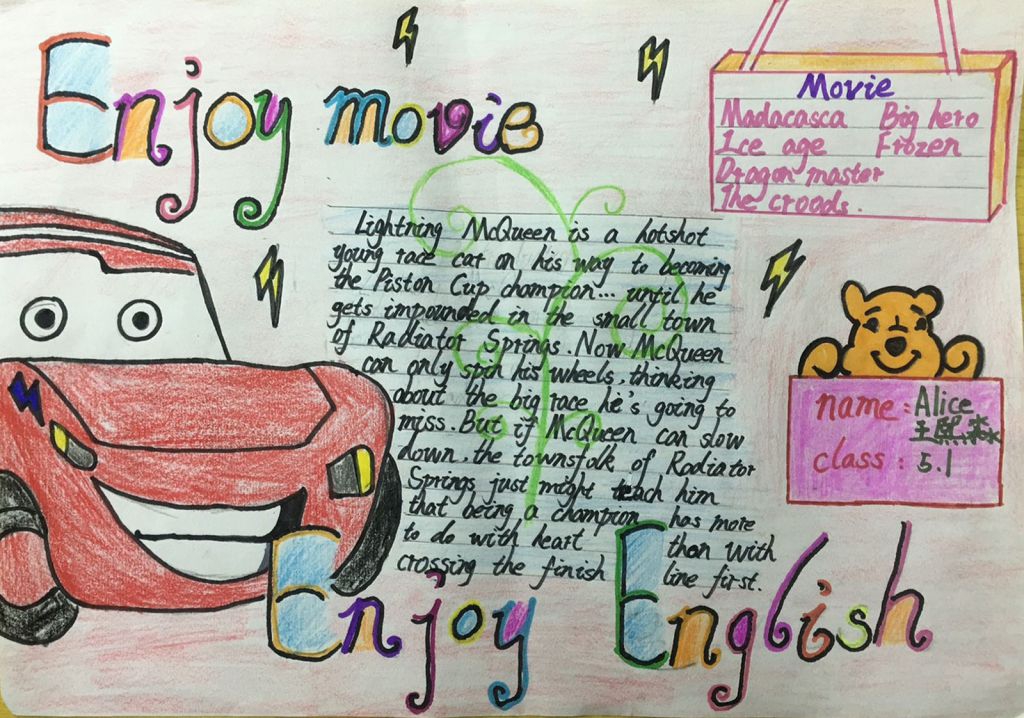 Enjoy movie
Movie
Madacasca Big hero
Ice age Frozen
Dragon master
The croods.
Lightning McQueen is a hotshot
young race car on his way to becoming
the Piston Cup champion... until he
gets impounded in the small town
of Radiator Springs. Now McQueen
can only spin his wheels, thinking
about the big race he's going to
miss. But if McQueen can slow
down, the townsfolk of Radiator
Springs just might teach him
that being a champion has more
to do with heart than with
crossing the finish line first.
name: Alice
王熙
class: 5.1
Enjoy English